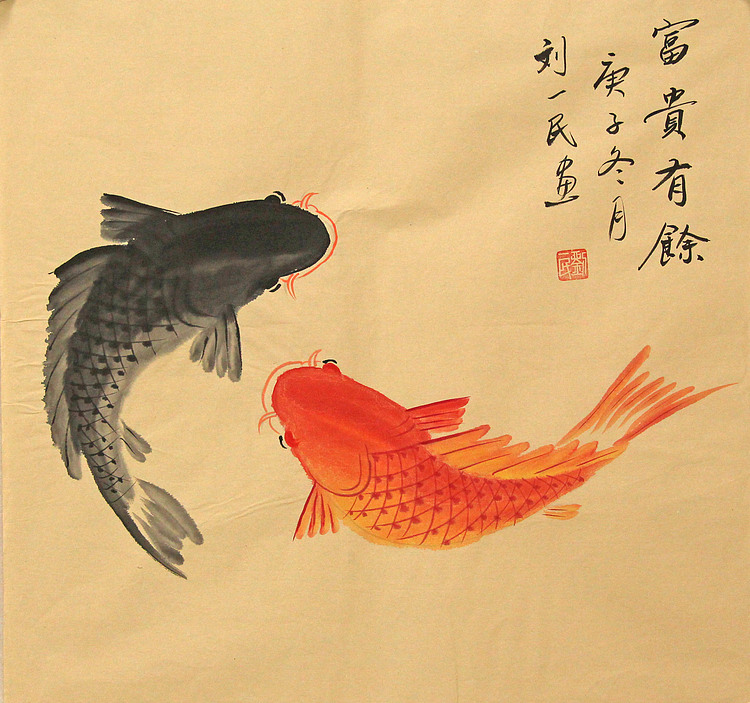 富貴有餘
庚子冬月
刘一民画
劉一民